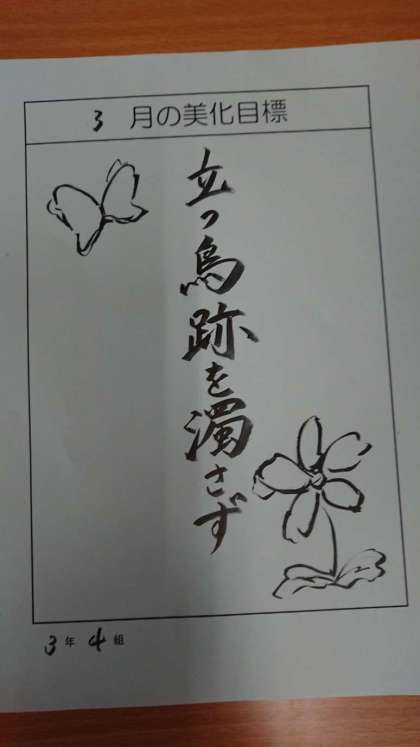 3 月の美化目標
立つ鳥跡を濁さず
3年 4組